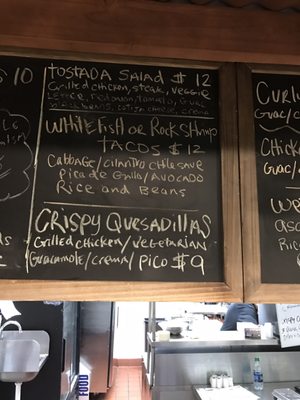 10
TOSTADA SALAD $ 12
Grilled chicken, steak, veggie
Lettuce, red onion, tomato, Guac
Black beans, cotija cheese, crema
White Fish or Rock Shrimp
TACOS $ 12
Cabbage/cilantro
Pico de Gallo/Avocado
Rice and Beans
CRISPY QUESADILLAS
Grilled chicken/vegetarian
Guacamole/crema/pico $9
Guac/
Chick
Guac/
Rice
FOOD